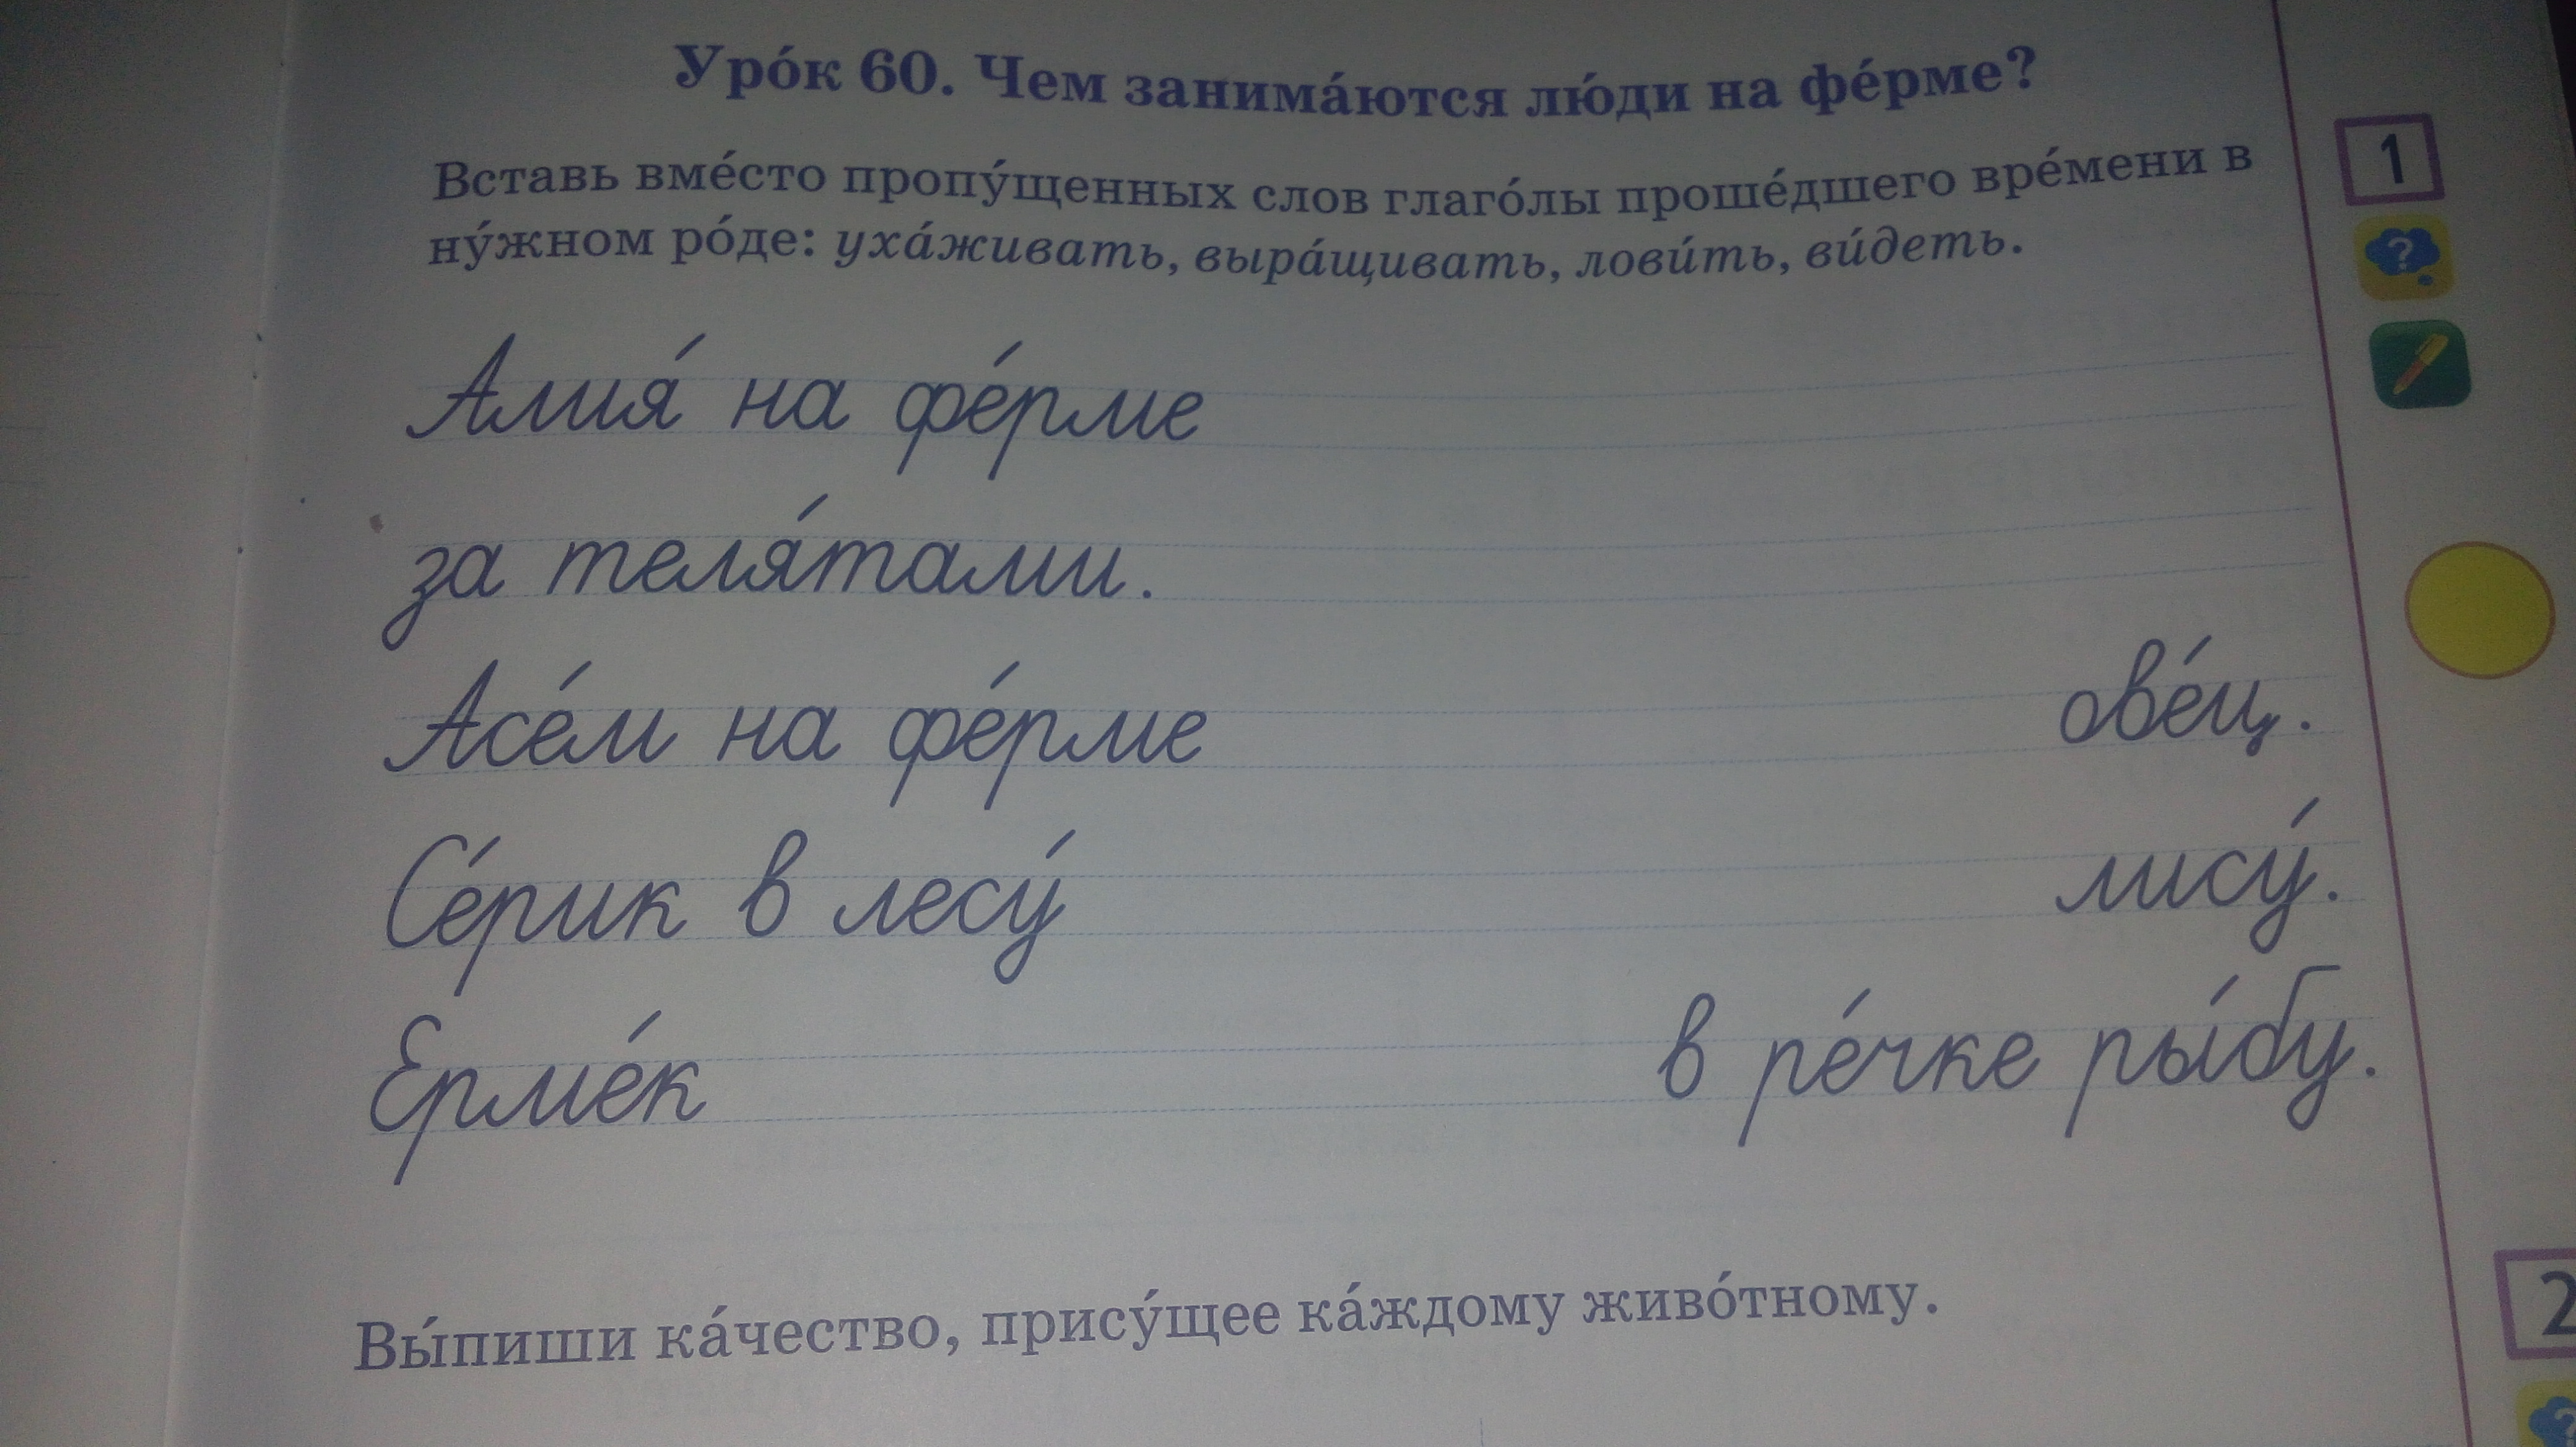 Уро́к 60. Чем занима́ются лю́ди на фе́рме?
1
Вставь вме́сто пропу́щенных слов глаго́лы проше́дшего вре́мени в
ну́жном ро́де: уха́живать, выра́щивать, лови́ть, ви́деть.
?
Алия́ на фе́рме
за теля́тами.
Асе́м на фе́рме ове́ц.
Се́рик в лесу́ лису́.
Ерме́к в ре́чке ры́бу.
2
Вы́пиши ка́чество, прису́щее ка́ждому живо́тному.
?